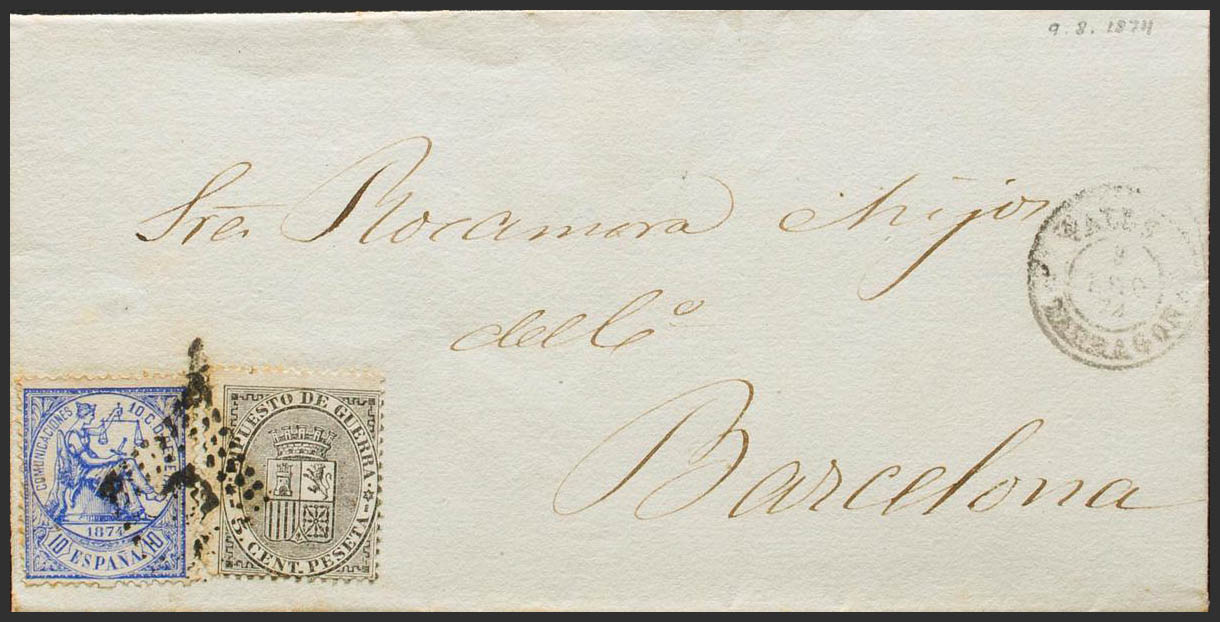 9.8.1874
Sres Rocamora é hijos
del Cº
Barcelona
VALLS
AGO
74
TARRAGONA
COMUNICACIONES 10 C. DE
1874
10 ESPAÑA 10
IMPUESTO DE GUERRA
5 CENT. PESETA